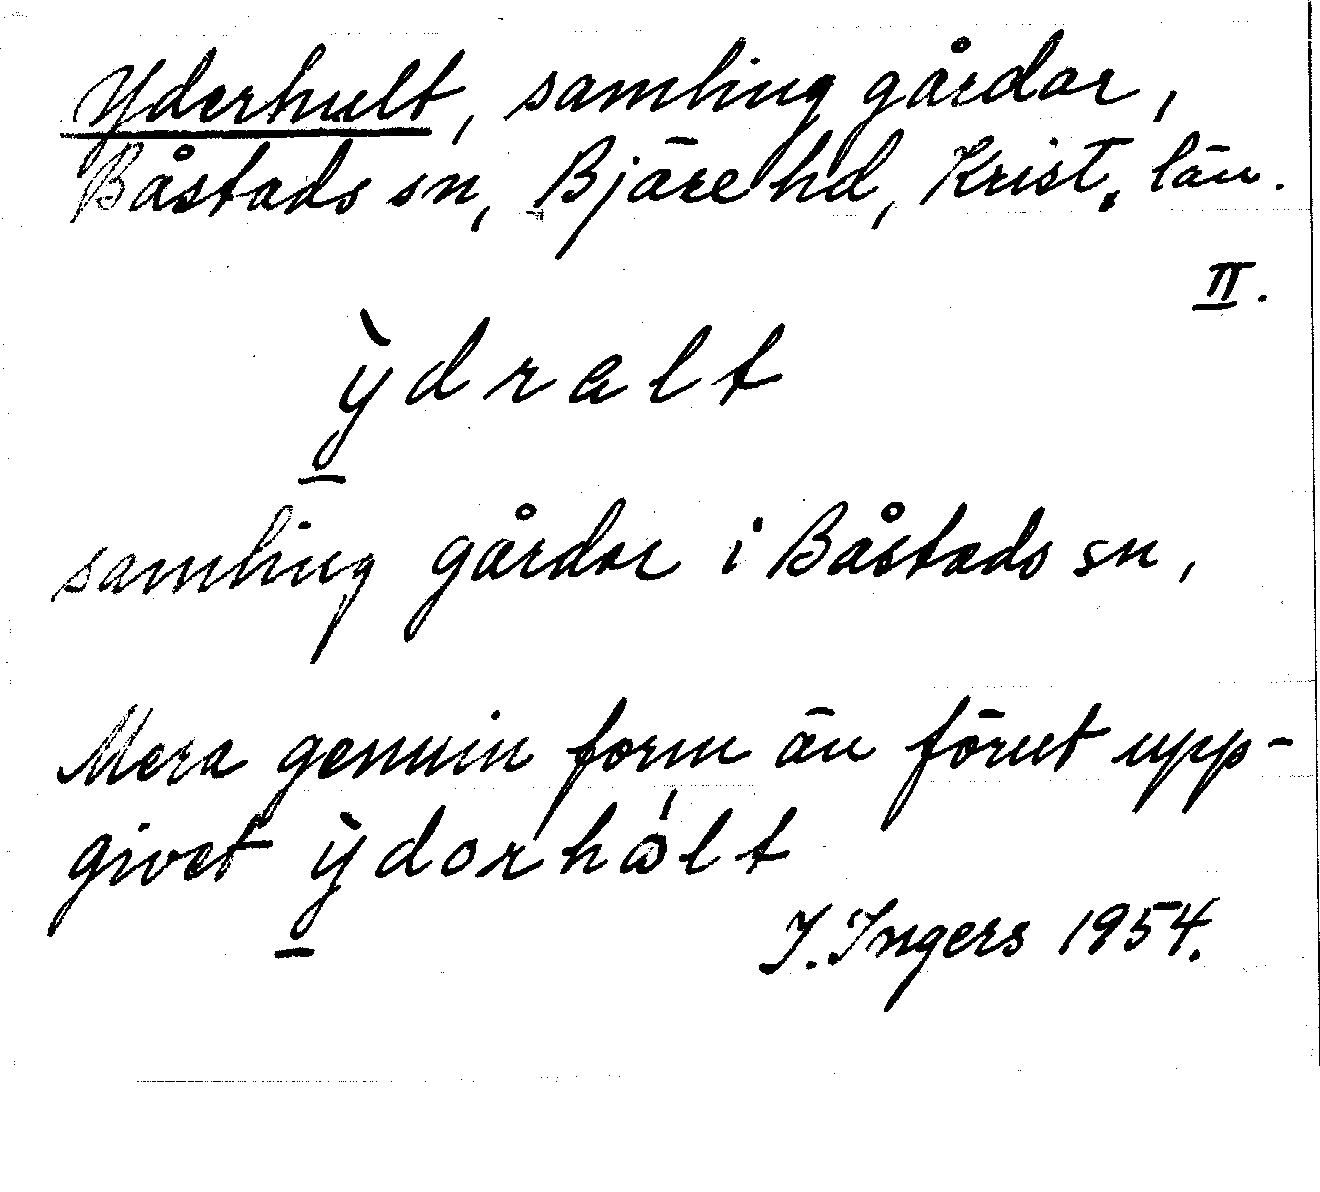 Yderhult, samling gårdar,
Båstads sn, Bjäre hd, Krist. län.
II.
ỳdralt
samling gårdar i Båstads sn,
Mera genuin form än förut upp-
givet ỳdərhålt
I. Ingers 1954.